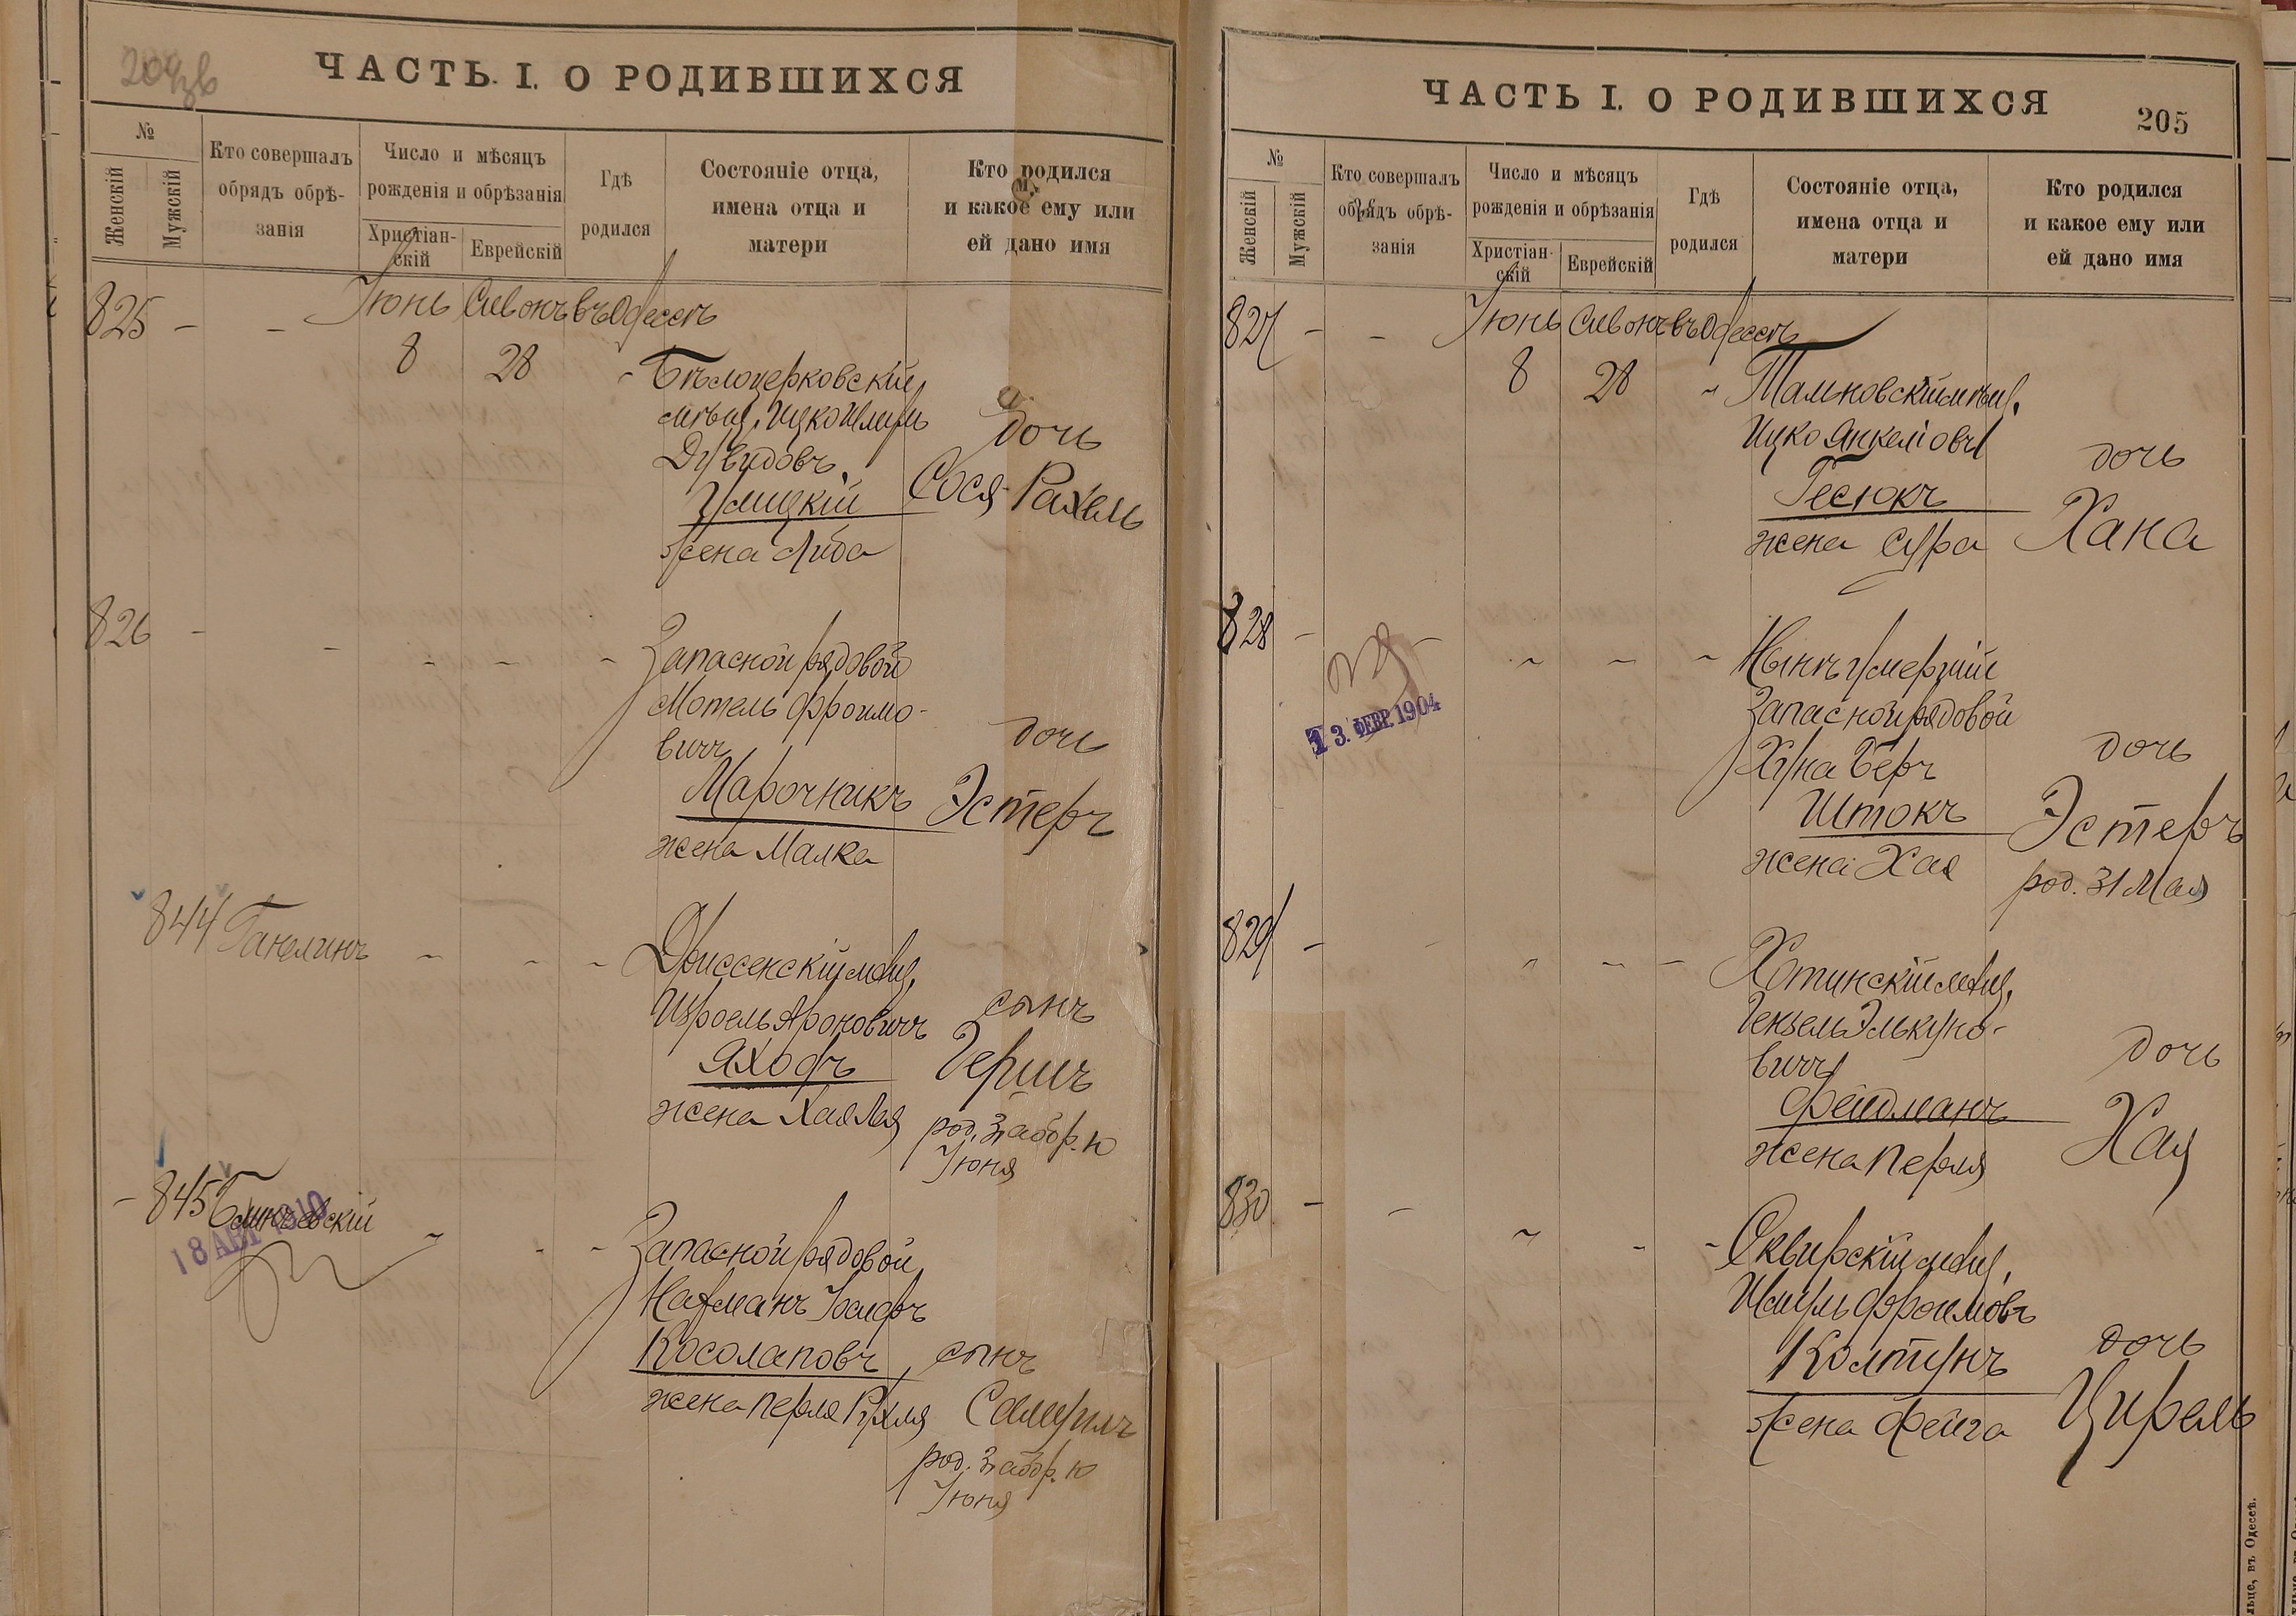 ЧАСТЬ I. О РОДИВШИХСЯ
№
Женскій
Мужскій
Кто совершалъ
обрядъ обрѣ-
занія
Число и мѣсяцъ
рожденія и обрѣзанія
Христіан-
скій
Еврейскій
Гдѣ
родился
Состояніе отца,
имена отца и
матери
Кто родился
и какое ему или
ей дано имя
825 - - Іюнь Сивонъ въ Одессѣ
8 28 Бѣлоцерковскій
мѣщ. Ицко Шмуль
Дувидовъ
Улицкій
жена Люба
дочь
Сося Рахель
826 - - - - - Запасной рядовой
Мотель Фроимо-
вичъ
Марочникъ
жена Малка
дочь
Эстеръ
844 Ганелинъ - - - Дриссенскій мѣщ.
Изроель Ароновичъ
Яходъ
жена Хая Лея
сынъ
Гершъ
род. 3, а обр. 10
Іюня
- 845 Блинчевскій - - - Запасной рядовой
Нахманъ
Косолаповъ
жена Перля Рухля
сынъ
Самуилъ
род. 3, а обр. 10
Іюня
ЧАСТЬ I. О РОДИВШИХСЯ
205
№
Женскій
Мужскій
Кто совершалъ
обрядъ обрѣ-
занія
Число и мѣсяцъ
рожденія и обрѣзанія
Христіан-
скій
Еврейскій
Гдѣ
родился
Состояніе отца,
имена отца и
матери
Кто родился
и какое ему или
ей дано имя
827 - - Іюнь Сивонъ въ Одессѣ
8 28 Тальновскій мѣщ.
Ицко Янкелiовъ
Гесюкъ
жена Сура
дочь
Хана
828 - - - - - Нынѣ умершій
13. ФЕВР. 1904
Запасной рядовой
Хуна Беръ
Штокъ
жена Хая
дочь
Эстеръ
род. 31 Мая
829 - - - - - Хотинскій мѣщ.
Гензель Элькуно-
вичъ
Фейдманъ
жена Перля
дочь
Хая
830 - - - - - Сквирскій мѣщ.
Шмуль Фроимовъ
Колтунъ
жена Фейга
дочь
Цирель
въ Одессѣ.